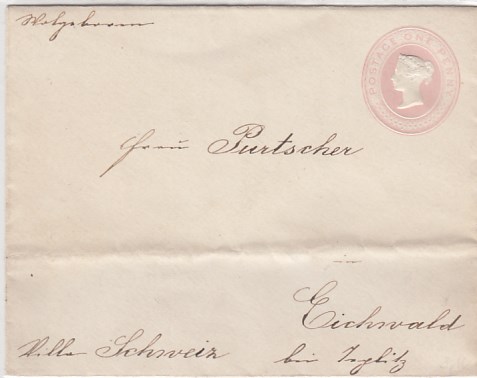 Wolgeboren
POSTAGE ONE PENNY
Frau Purtscher
in
Eichwald
Villa Schweiz
bei Teplitz